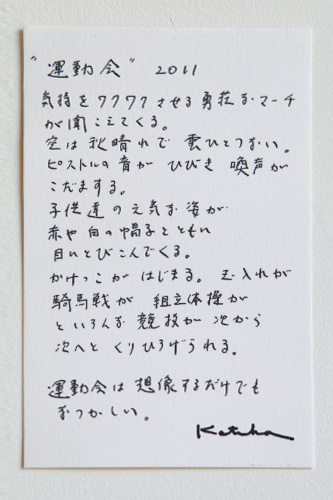 "運動会" 2011
気持をワクワクさせる勇荘なマーチ
が聞こえてくる。
空は秋晴れで 雲ひとつない。
ピストルの音が ひびき 喚声が
こだまする。
子供達の元気な姿が
赤や白の帽子とともに
目にとびこんでくる。
かけっこが はじまる。玉入れが
騎馬戦が 組立体操が
といろんな競技が次から
次へと くりひろげられる。
運動会は想像するだけでも
なつかしい。